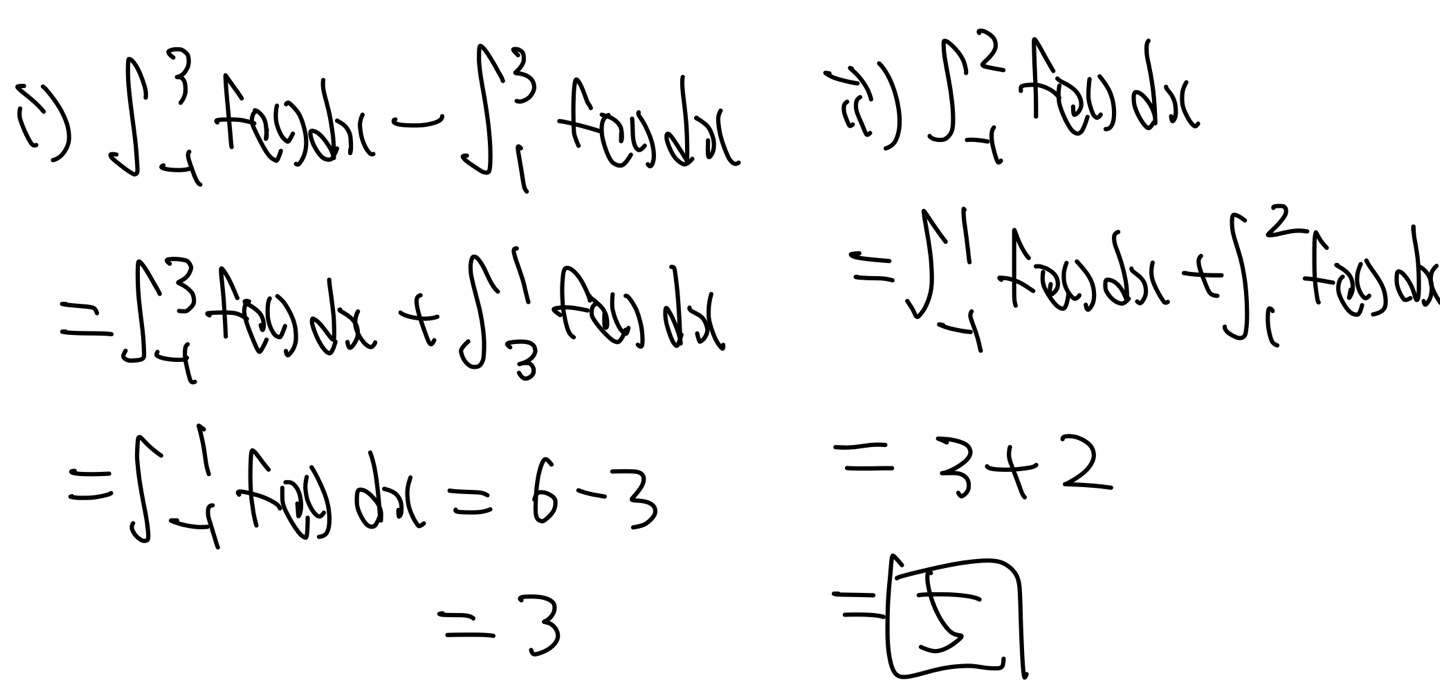 i) ∫_{-1}^{3} f(x)dx - ∫_{1}^{3} f(x)dx
= ∫_{-1}^{3} f(x)dx + ∫_{3}^{1} f(x)dx
= ∫_{-1}^{1} f(x)dx = 6-3
= 3
ii) ∫_{-1}^{2} f(x)dx
= ∫_{-1}^{1} f(x)dx + ∫_{1}^{2} f(x)dx
= 3+2
= 5